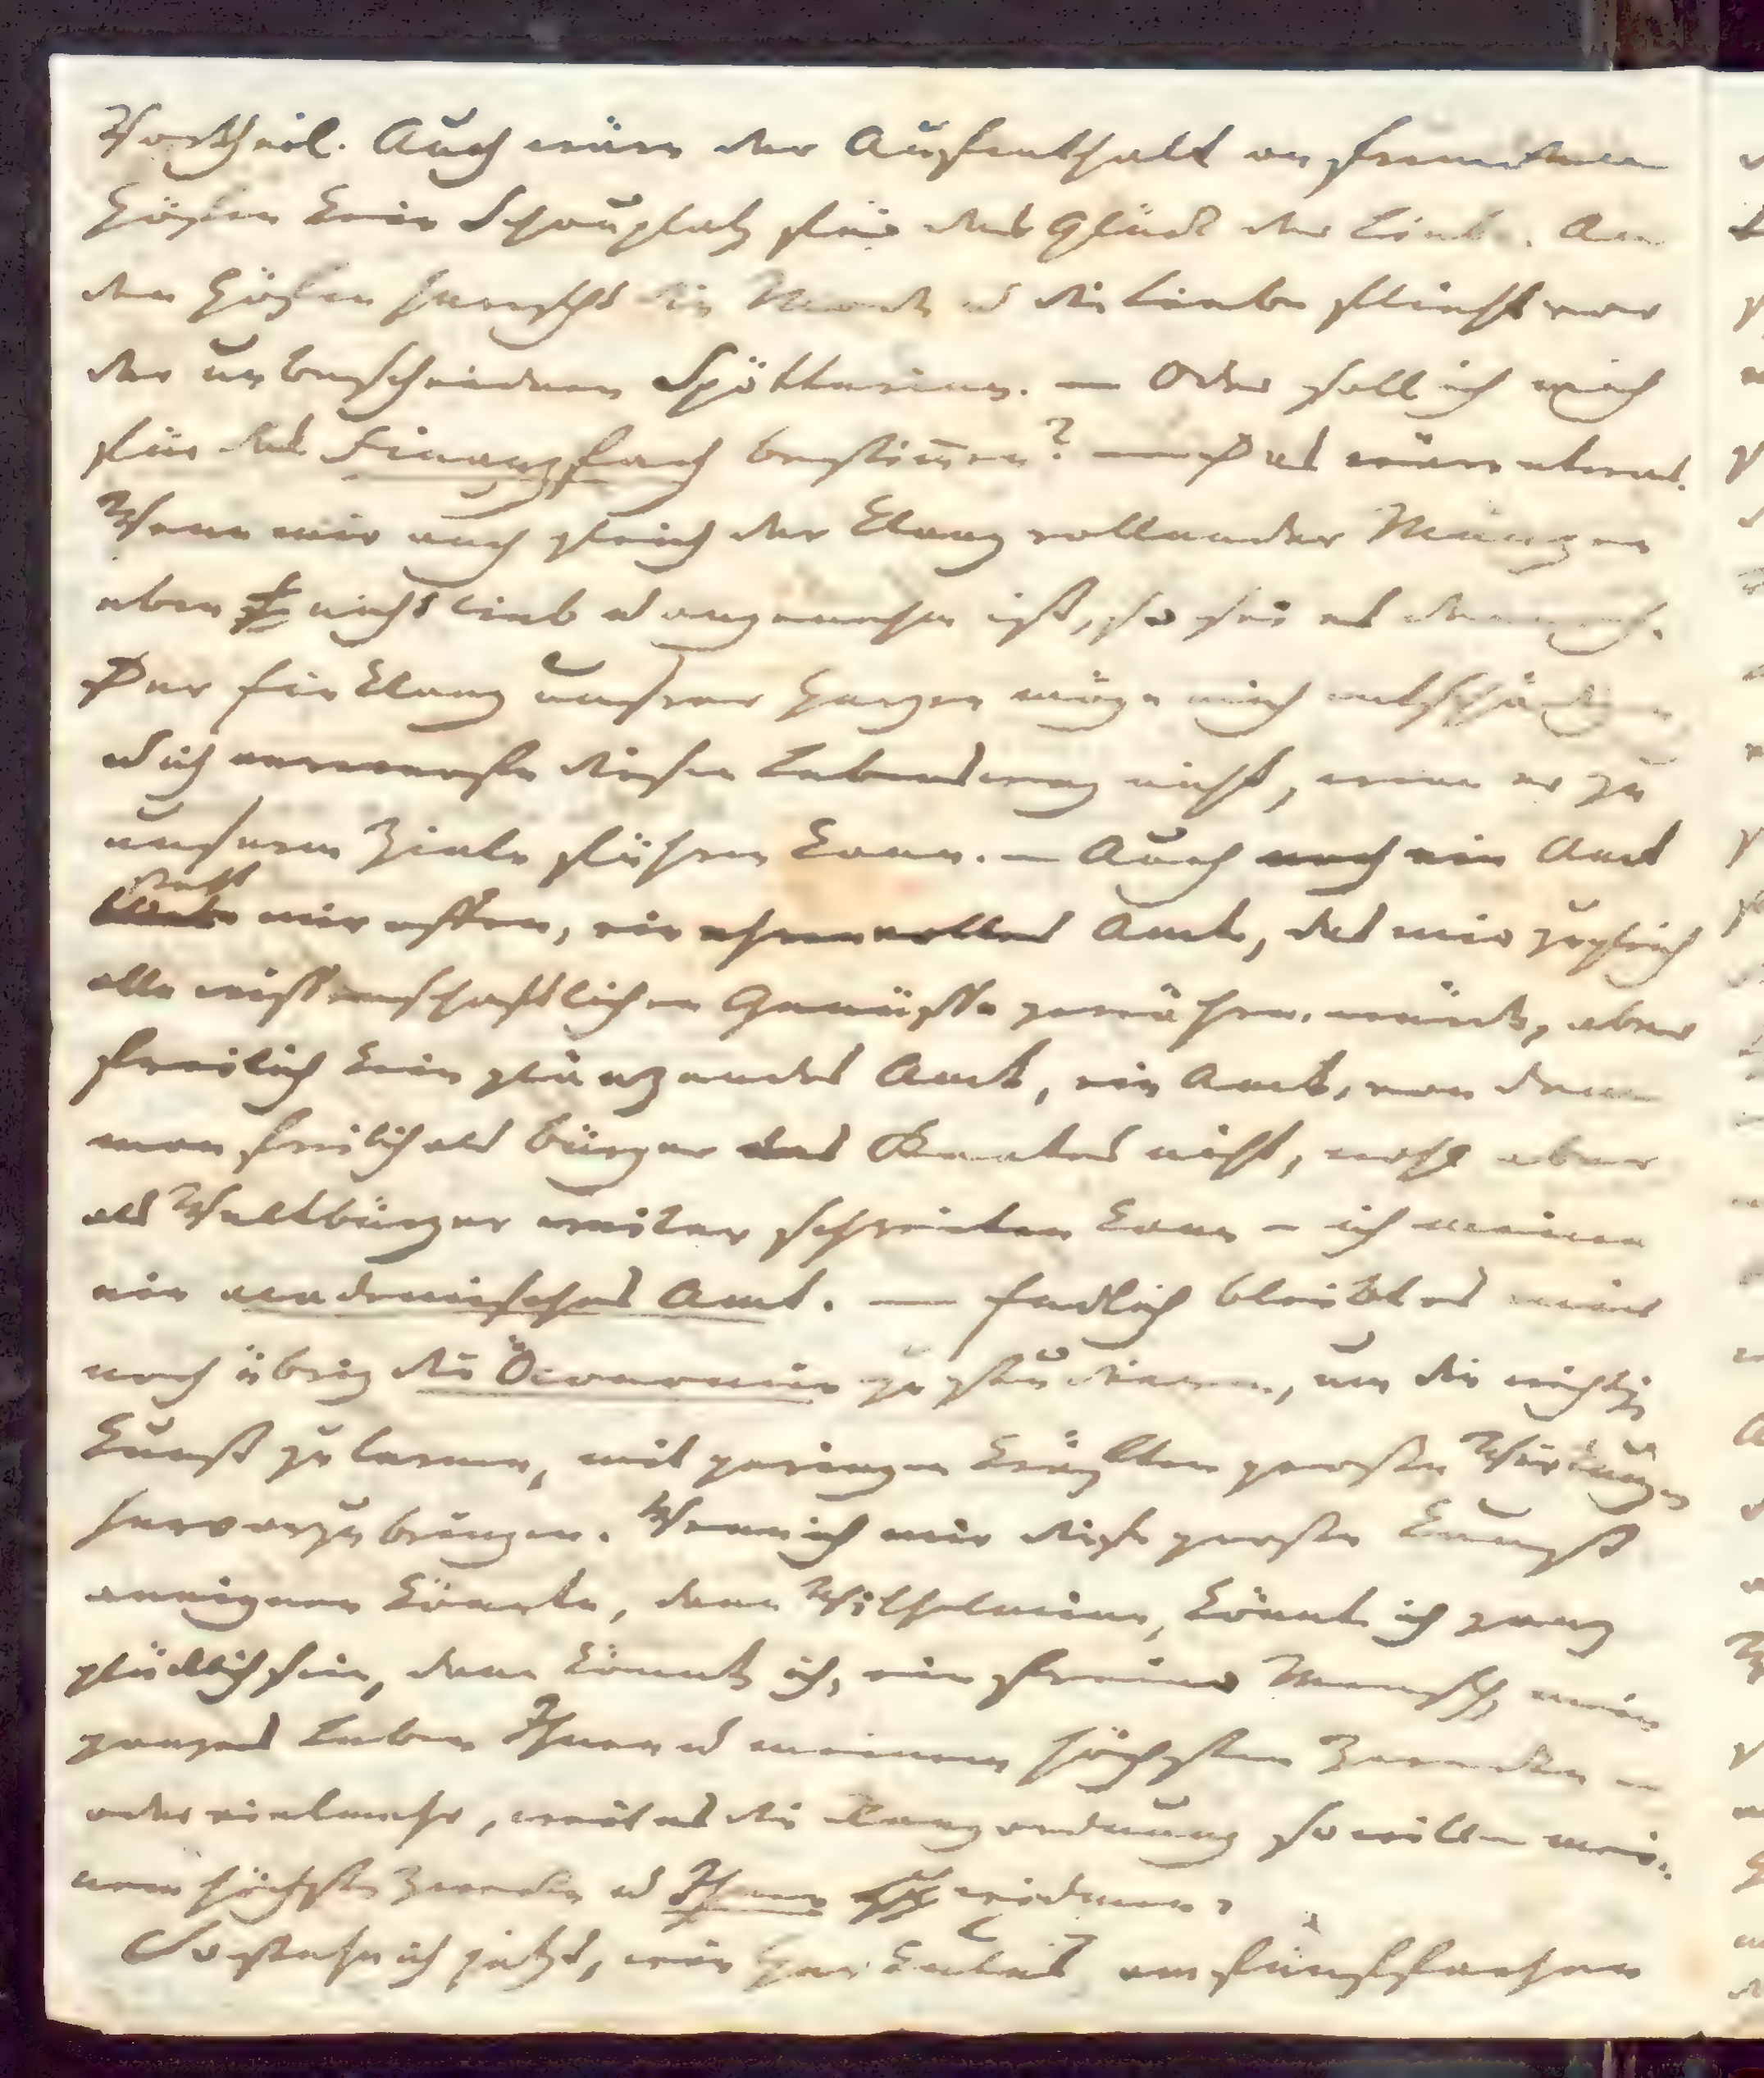 Vortheil. Auch wäre der Aufenthalt an fremden
Höfen kein Schauplatz für das Glück der Liebe. An
den Höfen herrscht die Mode u die Liebe flieht vor
der unbescheidnen Spötterinn. — Oder soll ich mich
für das Finanzfach bestimen? — Das wäre etwas.
Wenn mir auch gleich der Klang rollender Münzen
eben nicht lieb u angenehm ist, so sei es dennoch.
Der Einklang unsrer Herzen möge mich entschädigen
u ich verwerfe diesen Lebensweg nicht, wenn er zu
unserm Ziele führen kann. — Auch noch ein Amt
steht mir offen, ein ehrenvolles Amt, das mir zugleich
alle wissenschaftlichen Genüsse gewähren würde, aber
freilich kein glänzendes Amt, ein Amt, von dem
man freilich als Bürger des Staates nicht, wohl aber
als Weltbürger weiter schreiten kann – ich meine
ein academisches Amt. — Endlich bleibt es mir
noch übrig die Öconomie zu studieren, um die wichtige
Kunst zu lernen, mit geringen Kräften große Wirkungen
hervorzubringen. Wenn ich mir diese große Kunst
aneignen könnte, dann Wilhelmine, könnte ich ganz
glücklich sein, dann könnte ich, ein freier Mensch, mein
ganzes Leben Ihnen u meinem höchsten Zwecke –
oder vielmehr, weil es die Rangordnung so will – mei-
nem höchsten Zwecke u Ihnen widmen.
So stehe ich jetzt, wie Herkules am fünffachen